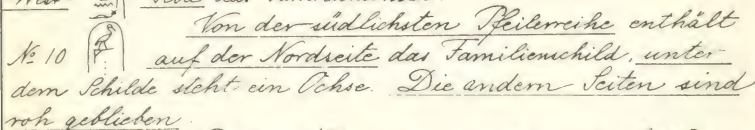 Von der südlichsten Pfeilerreihe enthält
№ 10 auf der Nordseite das Familienschild, unter
dem Schilde steht ein Ochse. Die andern Seiten sind
roh geblieben